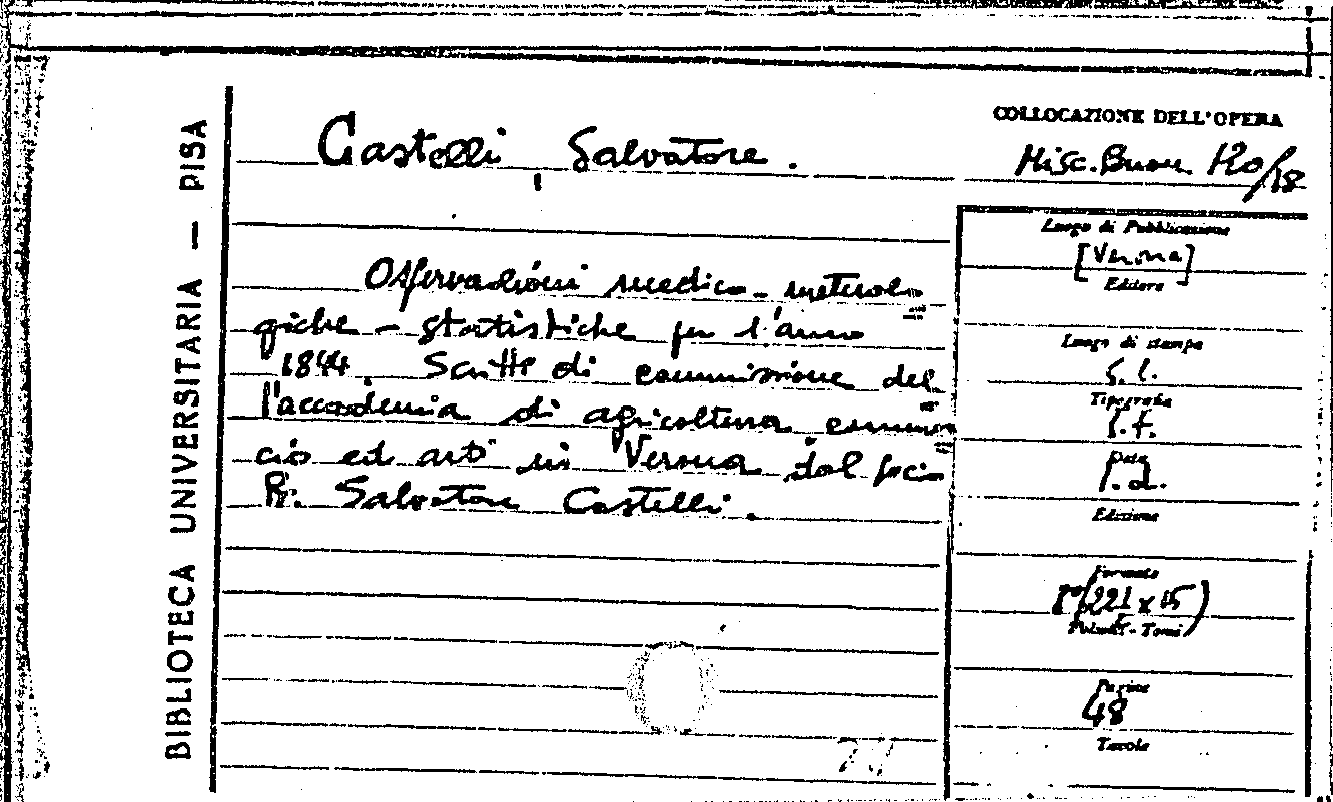 BIBLIOTECA UNIVERSITARIA — PISA
Castelli, Salvatore.
Osservazioni medico-meteorolo=
giche - statistiche per l'anno
1844. Scritte di commissione del=
l'accademia di agricoltura commer=
cio ed arti in Verona dal socio
Salvatore Castelli.
COLLOCAZIONE DELL'OPERA
Misc. Buon. 120/18
Luogo di Pubblicazione
[Verona]
Editore
Luogo di stampa
s. l.
Tipografia
s. t.
Data
s. d.
Edizione
Formato
8° (221 x 15)
Volumi - Tomi
Pagine
48
Tavole